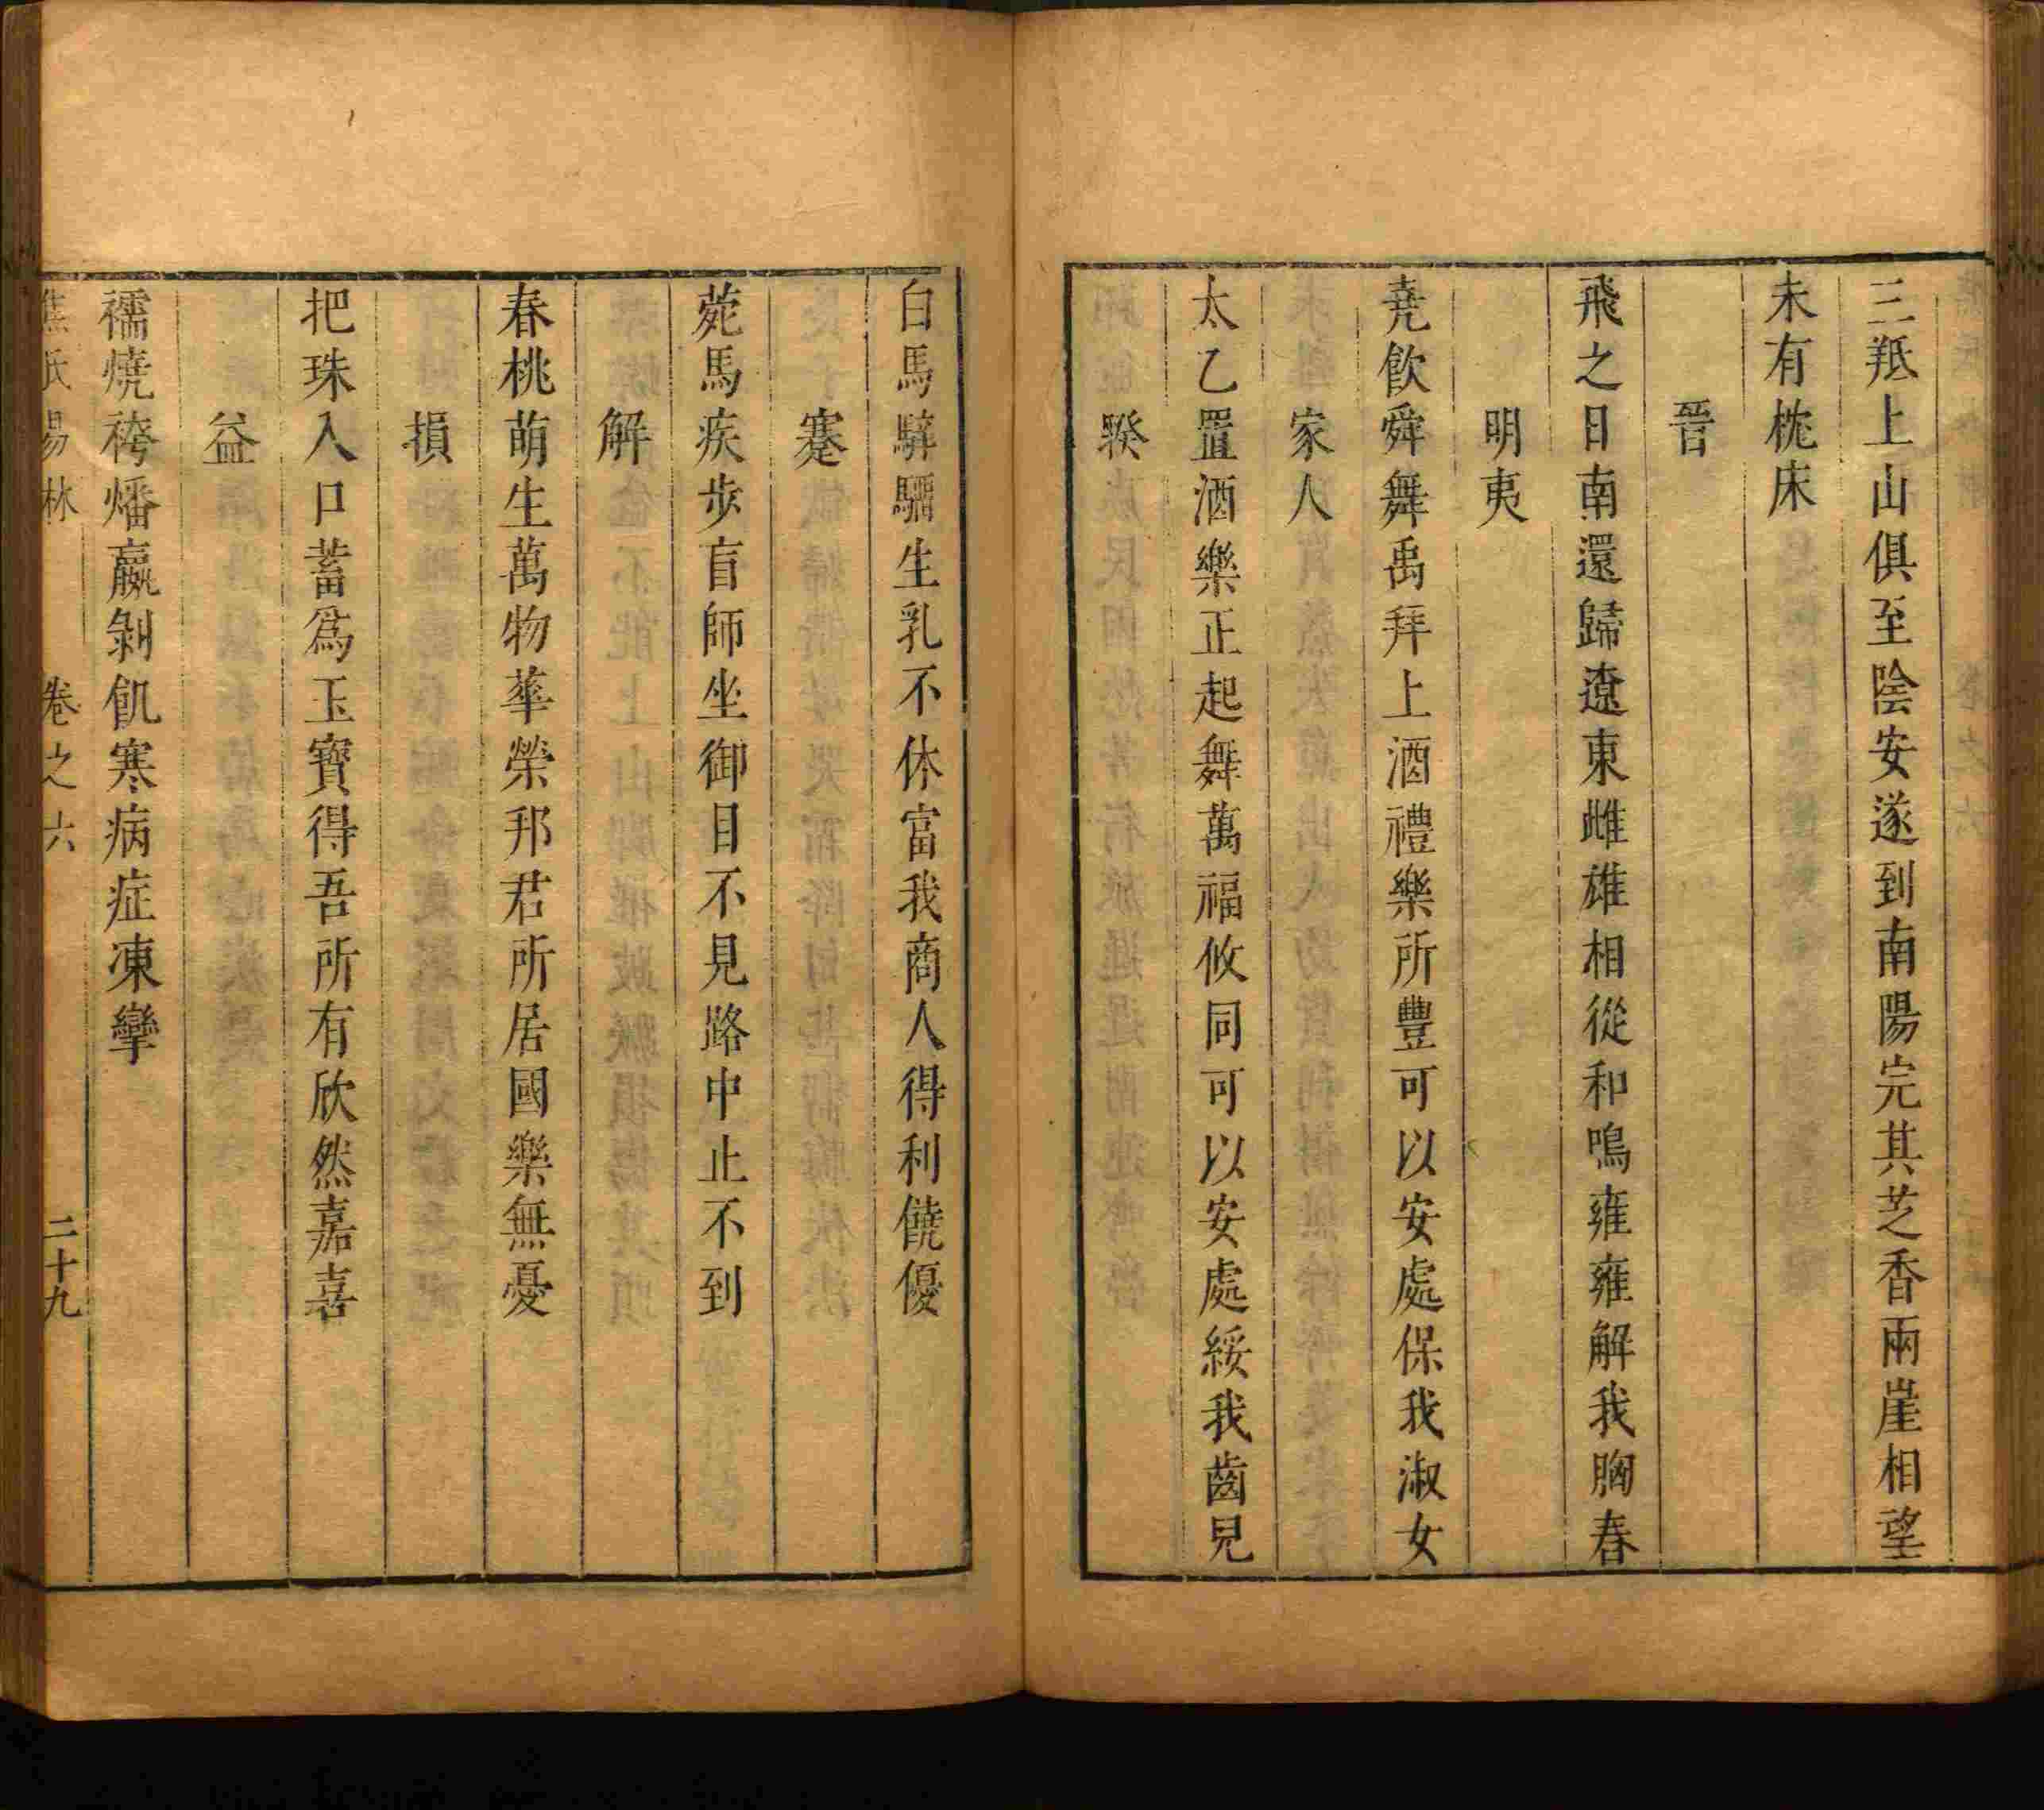 三羝上山俱至陰安遂到南陽完其芝香兩崖相望
未有枕床
晉
飛之日南還歸遼東雌雄相從和鳴雍雍解我胸春
明夷
堯飲舜舞禹拜上酒禮樂所豐可以安處保我淑女
家人
太乙置酒樂正起舞萬福攸同可以安處綏我齒兒
睽
白馬騂騮生乳不休富我商人得利饒優
蹇
蒬馬疾步盲師坐御目不見路中止不到
解
春桃萌生萬物華榮邦君所居國樂無憂
損
把珠入口蓄爲玉寶得吾所有欣然嘉喜
益
襦燒袴燔嬴剝飢寒病症凍攣
焦氏易林 卷之六 二十九